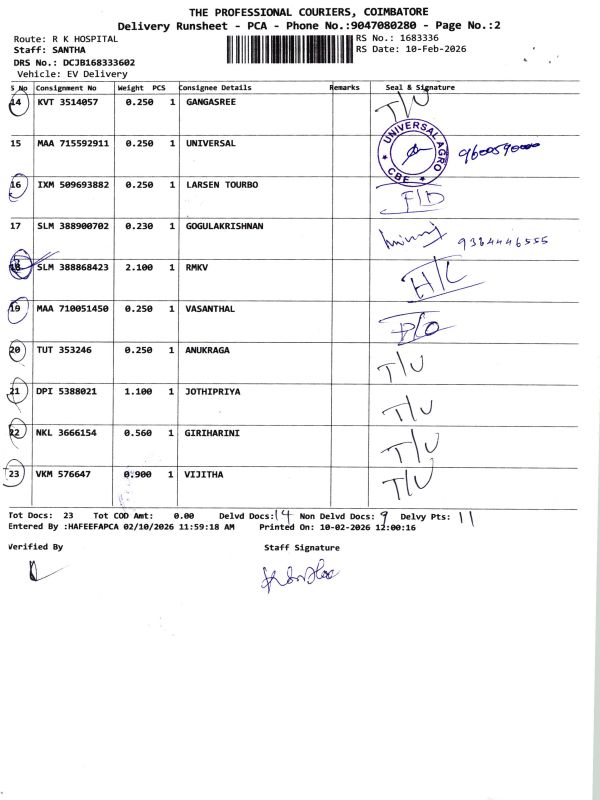 THE PROFESSIONAL COURIERS, COIMBATORE
Delivery Runsheet - PCA - Phone No.:9047080280 - Page No.:2
Route: R K HOSPITAL RS No.: 1683336
Staff: SANTHA RS Date: 10-Feb-2026
DRS No.: DCJB168333602
Vehicle: EV Delivery
S No Consignment No Weight PCS Consignee Details Remarks Seal & Signature
14 KVT 3514057 0.250 1 GANGASREE T/U
15 MAA 715592911 0.250 1 UNIVERSAL UNIVERSAL AGRO CBE
16 IXM 509693882 0.250 1 LARSEN TOURBO F/D
17 SLM 388900702 0.230 1 GOGULAKRISHNAN 9384446555
18 SLM 388868423 2.100 1 RMKV H/L
19 MAA 710051450 0.250 1 VASANTHAL P/O
20 TUT 353246 0.250 1 ANUKRAGA T/U
21 DPI 5388021 1.100 1 JOTHIPRIYA T/U
22 NKL 3666154 0.560 1 GIRIHARINI T/U
23 VKM 576647 0.900 1 VIJITHA T/U
Tot Docs: 23 Tot COD Amt: 0.00 Delvd Docs: 14 Non Delvd Docs: 9 Delvy Pts: 11
Entered By :HAFEEFAPCA 02/10/2026 11:59:18 AM Printed On: 10-02-2026 12:00:16
Verified By Staff Signature